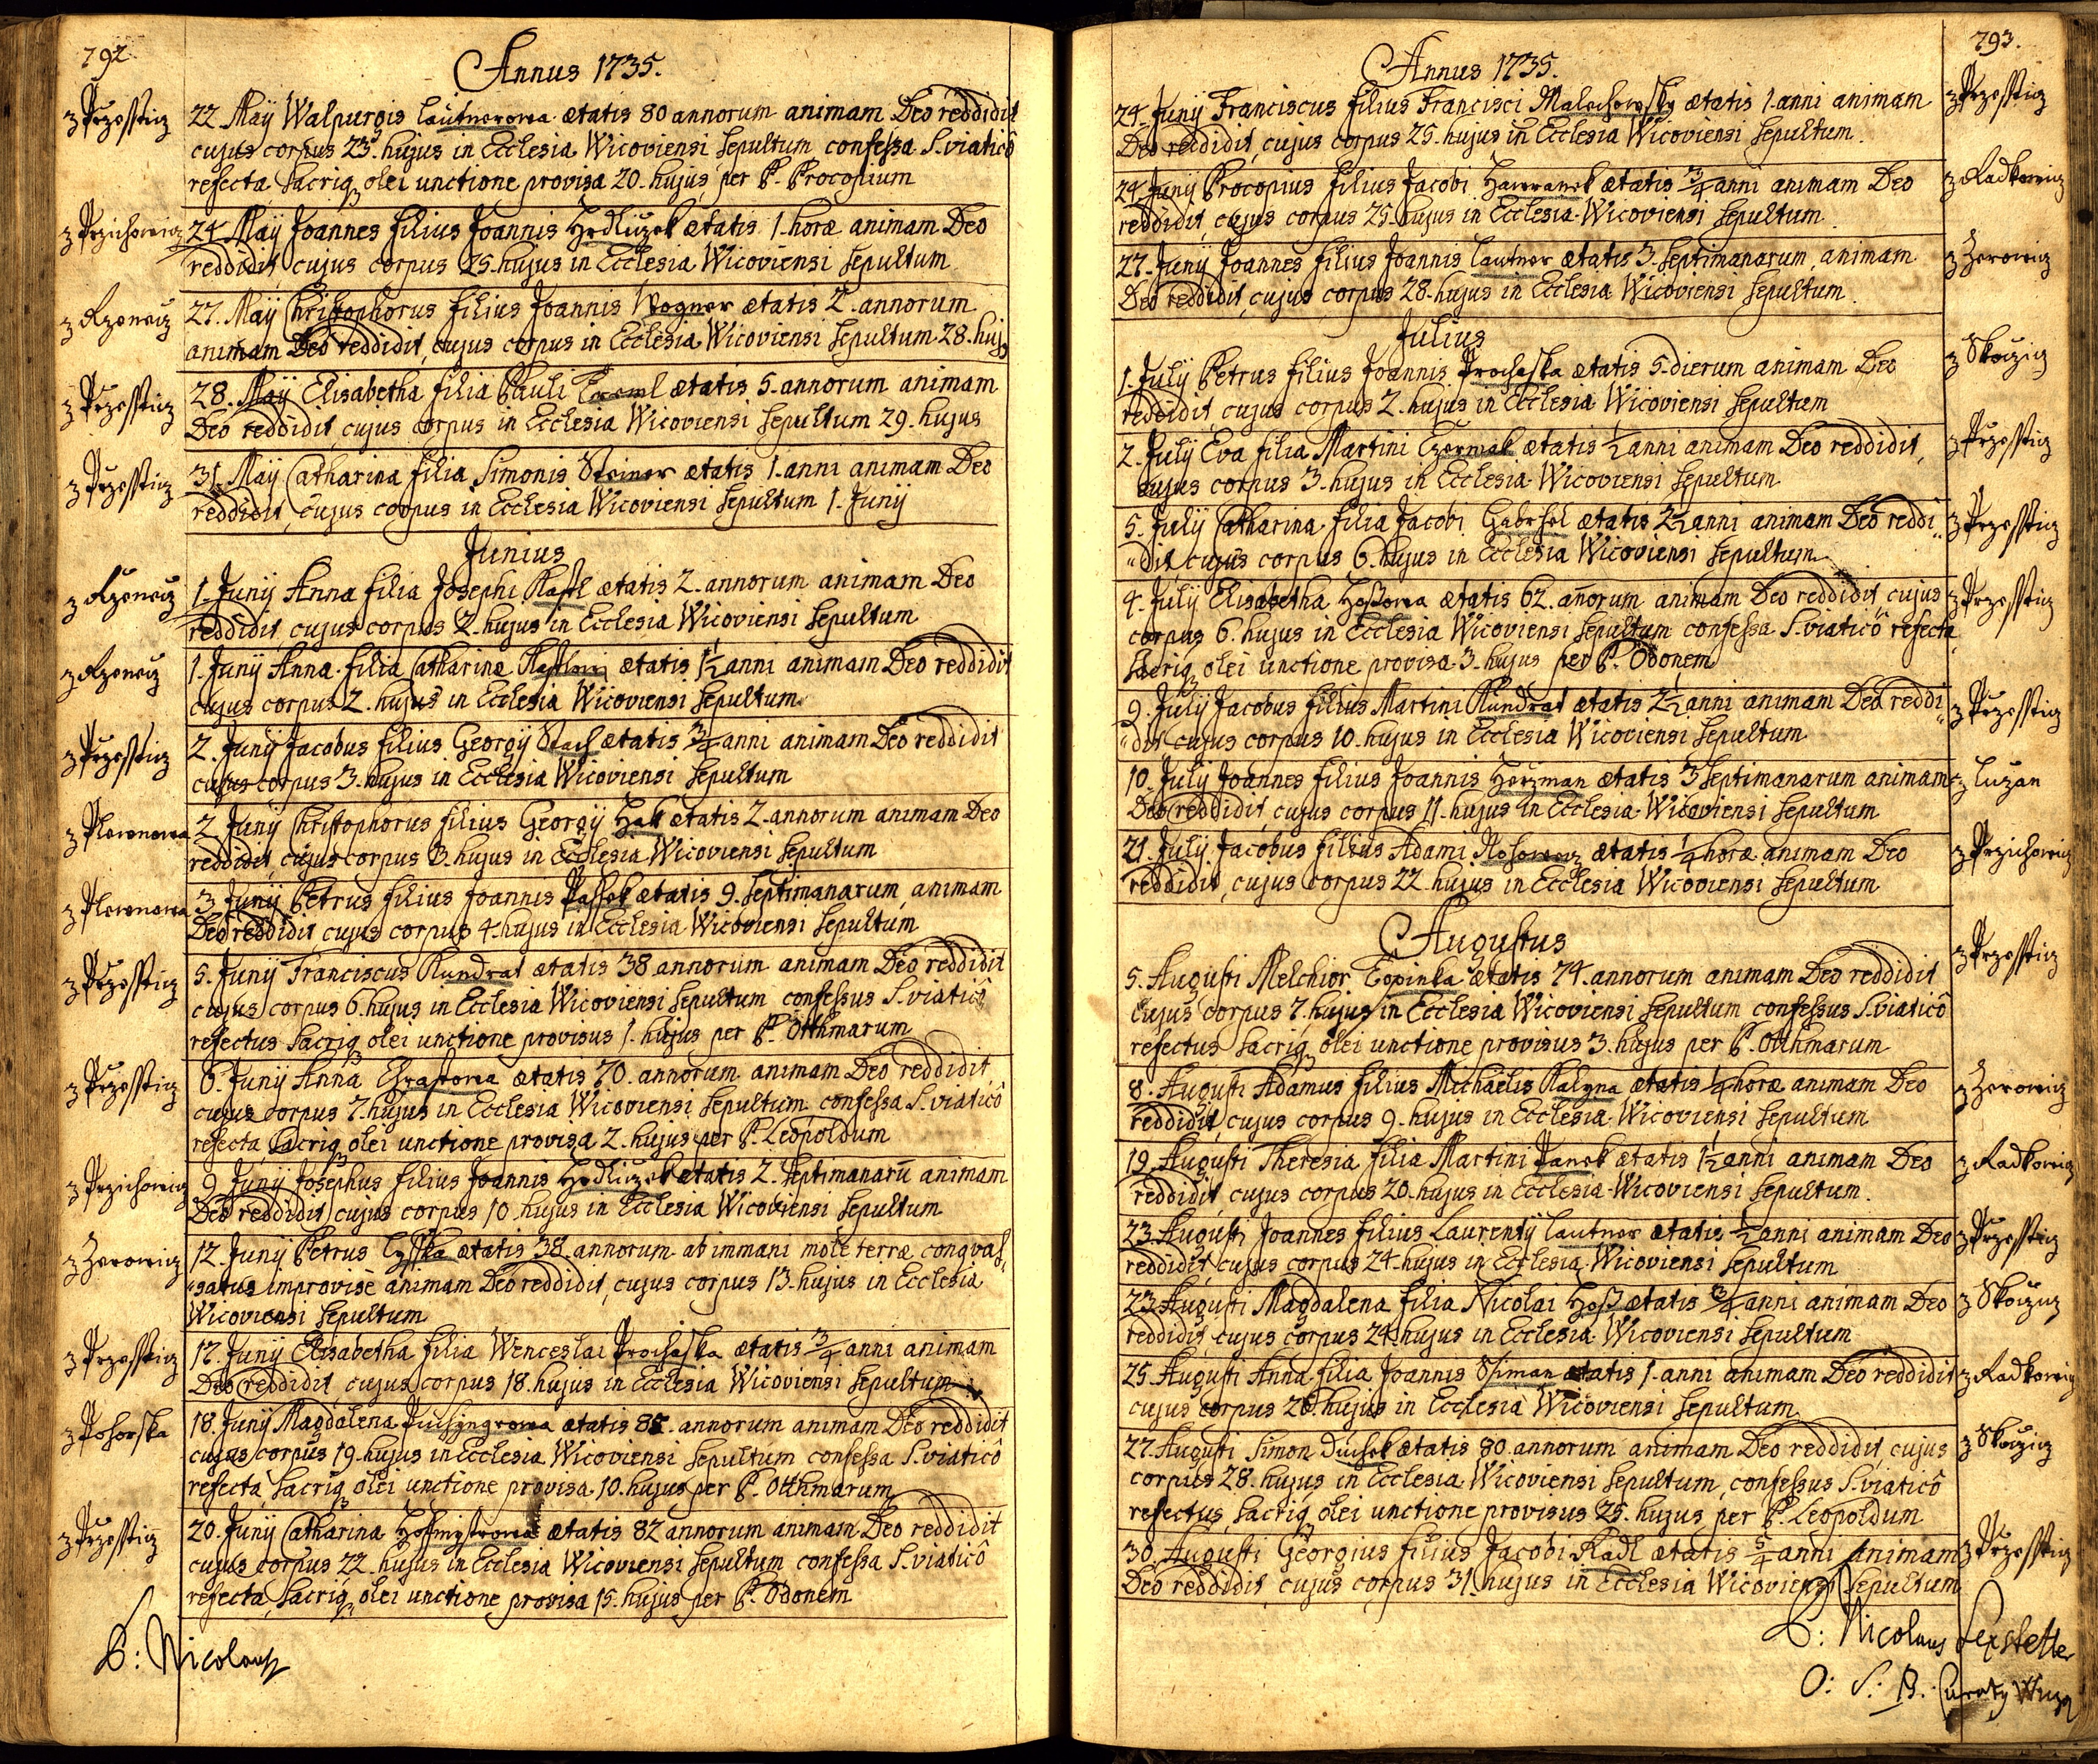 792.
Annus 1735.
z Przesstiz
22. Maÿ Walpurgis Lautnerowa ætatis 80 annorum animam Deo reddidit
cujus corpus 23. hujus in Ecclesia Wicoviensi sepultum confessa S. viaticô
refecta, sacriq₃ olei unctione provisa 20. hujus per P. Procopium
z Przichowiz
24. Maÿ Joannes filius Joannis Hedluzek ætatis 1. horæ animam Deo
reddidit, cujus corpus 25. hujus in Ecclesia Wicoviensi sepultum
z Rzeneiz
27. Maÿ Christophorus filius Joannis Wogner ætatis 2. annorum
animam Deo reddidit, cujus corpus in Ecclesia Wicoviensi sepultum 28. huj9
z Przesstiz
28. Maÿ Elisabetha filia Pauli ætatis 5. annorum animam
Deo reddidit, cujus corpus in Ecclesia Wicoviensi sepultum 29. hujus
z Przesstiz
31. Maÿ Catharina filia Simonis Steiner ætatis 1. anni animam Deo
reddidit, cujus corpus in Ecclesia Wicoviensi sepultum 1. Junÿ
Junius
z Rzeneiz
1. Junÿ Anna filia Josephi Kastl ætatis 2. annorum animam Deo
reddidit, cujus corpus 2. hujus in Ecclesia Wicoviensi sepultum
z Rzeneiz
1. Junÿ Anna filia Catharinæ ætatis 1½ anni animam Deo reddidit
cujus corpus 2. hujus in Ecclesia Wicoviensi sepultum
z Przesstiz
2. Junÿ Jacobus filius Georgÿ Stach ætatis ¾ anni animam Deo reddidit
cujus corpus 3. hujus in Ecclesia Wicoviensi sepultum
z Plewnowa
2. Junÿ Christophorus filius Georgÿ Hak ætatis 2. annorum animam Deo
reddidit, cujus corpus 3. hujus in Ecclesia Wicoviensi sepultum
z Plewnowa
3. Junÿ Petrus filius Joannis Passek ætatis 9. septimanarum, animam
Deo reddidit, cujus corpus 4. hujus in Ecclesia Wicoviensi sepultum
z Przesstiz
5. Junÿ Franciscus Kundrat ætatis 38 annorum animam Deo reddidit
cujus corpus 6. hujus in Ecclesia Wicoviensi sepultum confessus S. viaticô
refectus sacriq₃ olei unctione provisus 1. hujus per P. Otthmarum
z Przesstiz
6. Junÿ Anna Chrastowa ætatis 70. annorum animam Deo reddidit,
cujus corpus 7. hujus in Ecclesia Wicoviensi sepultum confessa S. viaticô
refecta, sacriq₃ olei unctione provisa 2. hujus per P. Leopoldum
z Przichowiz
9. Junÿ Josephus filius Joannis Hedluzek ætatis 2. septimanarū animam
Deo reddidit, cujus corpus 10. hujus in Ecclesia Wicoviensi sepultum
z Zerowiz
12. Junÿ Petrus Cysska ætatis 38. annorum ab immani mole terræ conqvas„
„satus improvisè animam Deo reddidit, cujus corpus 13. hujus in Ecclesia
Wicoviensi sepultum
z Przesstiz
17. Junÿ Elisabetha filia Wenceslai Prochaska ætatis ¾ anni animam
Deo reddidit, cujus corpus 18. hujus in Ecclesia Wicoviensi sepultum
z Pohorska
18. Junÿ Magdalena ætatis annorum animam Deo reddidit
cujus corpus 19. hujus in Ecclesia Wicoviensi sepultum confessa S. viaticô
refecta, sacriq₃ olei unctione provisa 10. hujus per P. Otthmarum
z Przesstiz
20. Junÿ Catharina Hofmystrowa ætatis 82 annorum animam Deo reddidit
cujus corpus 22. hujus in Ecclesia Wicoviensi sepultum confessa S. viaticô
refecta, sacriq₃ olei unctione provisa 15. hujus per P. Odonem
P: Nicolaus
793.
Annus 1735.
24. Junÿ Franciscus filius Francisci Malechowsky ætatis 1. anni animam
z Przesstiz
Deo reddidit, cujus corpus 25. hujus in Ecclesia Wicoviensi sepultum.
24. Junÿ Procopius filius Jacobi Hawranek ætatis ¾ anni animam Deo
z Radkowiz
reddidit, cujus corpus 25. hujus in Ecclesia Wicoviensi sepultum.
27. Junÿ Joannes filius Joannis Lautner ætatis 3. septimanarum, animam
z Zerowiz
Deo reddidit, cujus corpus 28. hujus in Ecclesia Wicoviensi sepultum.
Julius
1. Julÿ Petrus filius Joannis Prochaska ætatis 5. dierum animam Deo
z Skoziz
reddidit, cujus corpus 2. hujus in Ecclesia Wicoviensi sepultum
2. Julÿ Eva filia Martini Czermak ætatis ½ anni animam Deo reddidit,
z Przesstiz
cujus corpus 3. hujus in Ecclesia Wicoviensi sepultum
5. Julÿ Catharina filia Jacobi Gabrhel ætatis 2½ anni animam Deo reddi„
z Przesstiz
„dit, cujus corpus 6. hujus in Ecclesia Wicoviensi sepultum
4. Julÿ Elisabetha Hoßowa ætatis 62. añorum animam Deo reddidit cujus
z Przesstiz
corpus 6. hujus in Ecclesia Wicoviensi sepultum confessa S. viaticô refecta
sacriq₃ olei unctione provisa 3. hujus per P. Odonem
9. Julÿ Jacobus filius Martini Kundrat ætatis 2½ anni animam Deo reddi„
z Przesstiz
„dit, cujus corpus 10. hujus in Ecclesia Wicoviensi sepultum
10. Julÿ Joannes filius Joannis Herzman ætatis 3 septimanarum animam
z Luzan
Deo reddidit, cujus corpus 11. hujus in Ecclesia Wicoviensi sepultum
21. Julÿ Jacobus filius Adami ætatis ¼ horæ animam Deo
z Przichowiz
reddidit, cujus corpus 22. hujus in Ecclesia Wicoviensi sepultum
Augustus
z Przesstiz
5. Augusti Melchior Topinka ætatis 74. annorum animam Deo reddidit
cujus corpus 7. hujus in Ecclesia Wicoviensi sepultum confessus S. viaticô
refectus sacriq₃ olei unctione provisus 3. hujus per P. Otthmarum
8. Augusti Adamus filius Michaëlis Kalyna ætatis ¼ horæ animam Deo
z Zerowiz
reddidit, cujus corpus 9. hujus in Ecclesia Wicoviensi sepultum
19. Augusti Theresia filia Martini Panek ætatis 1½ anni animam Deo
z Radkowiz
reddidit, cujus corpus 20. hujus in Ecclesia Wicoviensi sepultum.
23. Augusti Joannes filius Laurentÿ Lautner ætatis ½ anni animam Deo
z Przesstiz
reddidit, cujus corpus 24. hujus in Ecclesia Wicoviensi sepultum
23. Augusti Magdalena filia Nicolai Hoß ætatis ¾ anni animam Deo
z Skoziz
reddidit, cujus corpus 24. hujus in Ecclesia Wicoviensi sepultum
25. Augusti Anna filia Joannis Ssiman ætatis 1. anni animam Deo reddidit
z Radkowiz
cujus corpus 26. hujus in Ecclesia Wicoviensi sepultum
27. Augusti Simon Duchek ætatis 80. annorum animam Deo reddidit, cujus
z Skoziz
corpus 28. hujus in Ecclesia Wicoviensi sepultum, confessus S. viaticô
refectus, sacriq₃ olei unctione provisus 25. hujus per P. Leopoldum
30. Augusti Georgius filius Jacobi Kadl ætatis 5/4 anni animam
z Przesstiz
Deo reddidit, cujus corpus 31. hujus in Ecclesia Wicoviensi sepultum
P: Nicolaus
O: S: B.